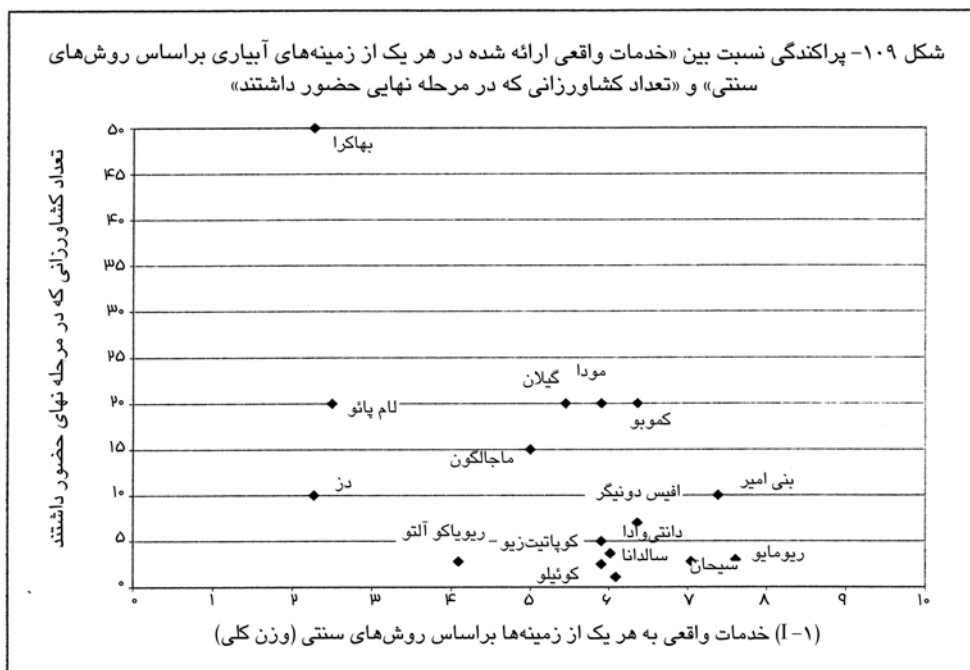 شکل ۱۰۹- پراکندگی نسبت بین «خدمات واقعی ارائه شده در هر یک از زمینه‌های آبیاری براساس روش‌های
سنتی» و «تعداد کشاورزانی که در مرحله نهایی حضور داشتند»
تعداد کشاورزانی که در مرحله نهای حضور داشتتند
۵۰
۴۵
۴۰
۳۵
۳۰
۲۵
۲۰
۱۵
۱۰
۵
۰
بهاکرا
مودا
گیلان
لام پائو
کموبو
ماجالگون
دز
افیس دونیگر
بنی امیر
ریوياکو آلتو
کوپاتیت‌زیو
دانتی‌وادا
سالدانا
کوئیلو
سیحان
ریومایو
۰ ۱ ۲ ۳ ۴ ۵ ۶ ۷ ۸ ۹ ۱۰
(I-۱) خدمات واقعی به هر یک از زمینه‌ها براساس روش‌های سنتی (وزن کلی)